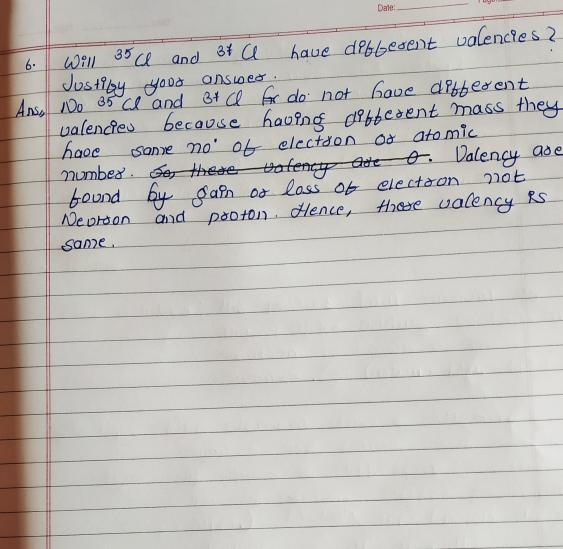 Date:
6. Will 35 Cl and 37 Cl have different valencies?
Justify your answer.
Ans, No 35 Cl and 37 Cl do not have different
valencies because having different mass they
have same no. of electron or atomic
number. So, there valency are 0. Valency are
found by gain or loss of electron not
Neutron and proton. Hence, there valency is
same.